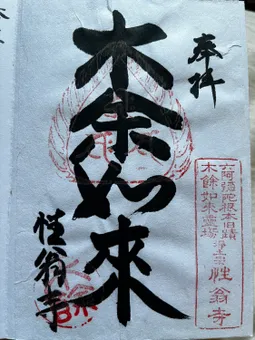 奉拝
木余如來
性翁寺
六阿弥陀根本旧蹟
木餘如来霊場 浄土宗 性翁寺